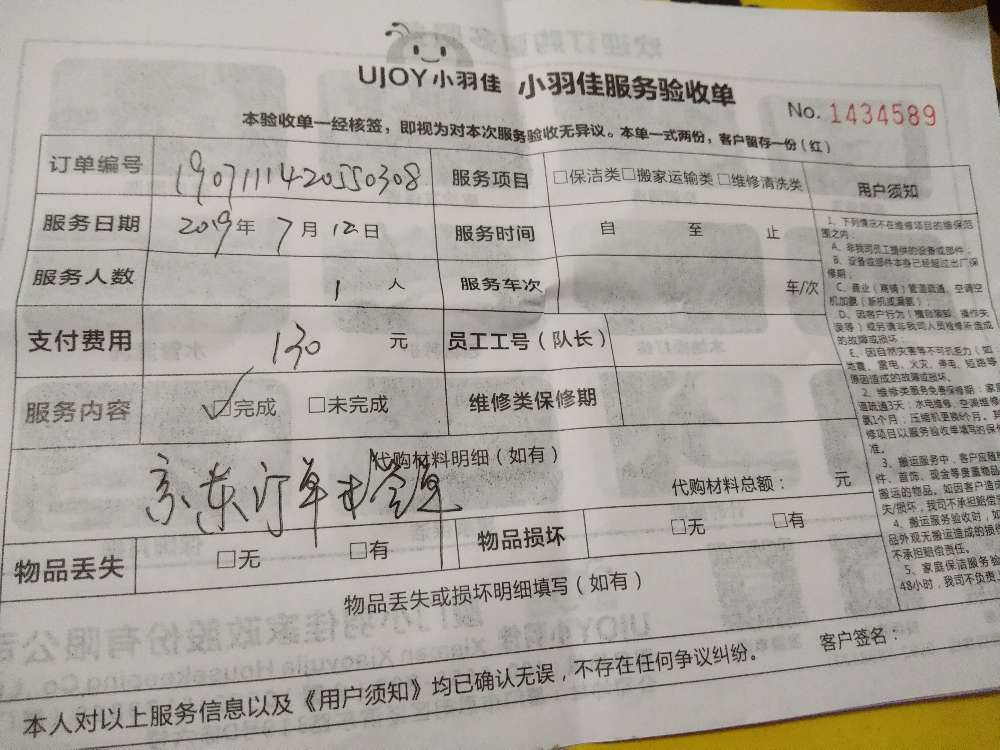 UJOY小羽佳 小羽佳服务验收单
No. 1434589
本验收单一经核签，即视为对本次服务验收无异议。本单一式两份，客户留存一份（红）
订单编号 1907111420550308 服务项目 □保洁类□搬家运输类□维修清洗类
服务日期 2019年7月12日 服务时间 自 至 止
服务人数 1 人 服务车次 车/次
支付费用 130 元 员工工号（队长）
服务内容 ☑完成 □未完成 维修类保修期
代购材料明细（如有）
京东订单
代购材料总额： 元
物品丢失 □无 □有 物品损坏 □无 □有
物品丢失或损坏明细填写（如有）
本人对以上服务信息以及《用户须知》均已确认无误，不存在任何争议纠纷。
客户签名：
用户须知
1、下列情况不在维修项目的维保范
围之内：
A、非我司员工提供的设备或部件；
B、设备或部件本身已经超过出厂保
修期；
C、商业（商铺）管道疏通、空调空
机加氨（新机或漏氨）；
D、因客户行为（擅自演卸、操作失
误等）或另请非我司人员维修所造成
的故障或损坏；
E、因自然灾害等不可抗力（如：
地震、雷电、火灾、停电、短路等
原因造成的故障或损坏。
2、维修类服务免费保修期：家
道疏通3天；水电维修、空调维修
氨1个月；压缩机更换6个月。其
修项目以服务验收单填写的保
准。
3、搬运服务中，客户应
件、首饰、现金等贵重物品
搬运的物品。如因客户造成
失/损坏，我司不承担赔偿
4、搬运服务验收时，如
品外观无搬运造成的损
不承担赔偿责任。
5、家庭保洁服务验
48小时，我司不负责